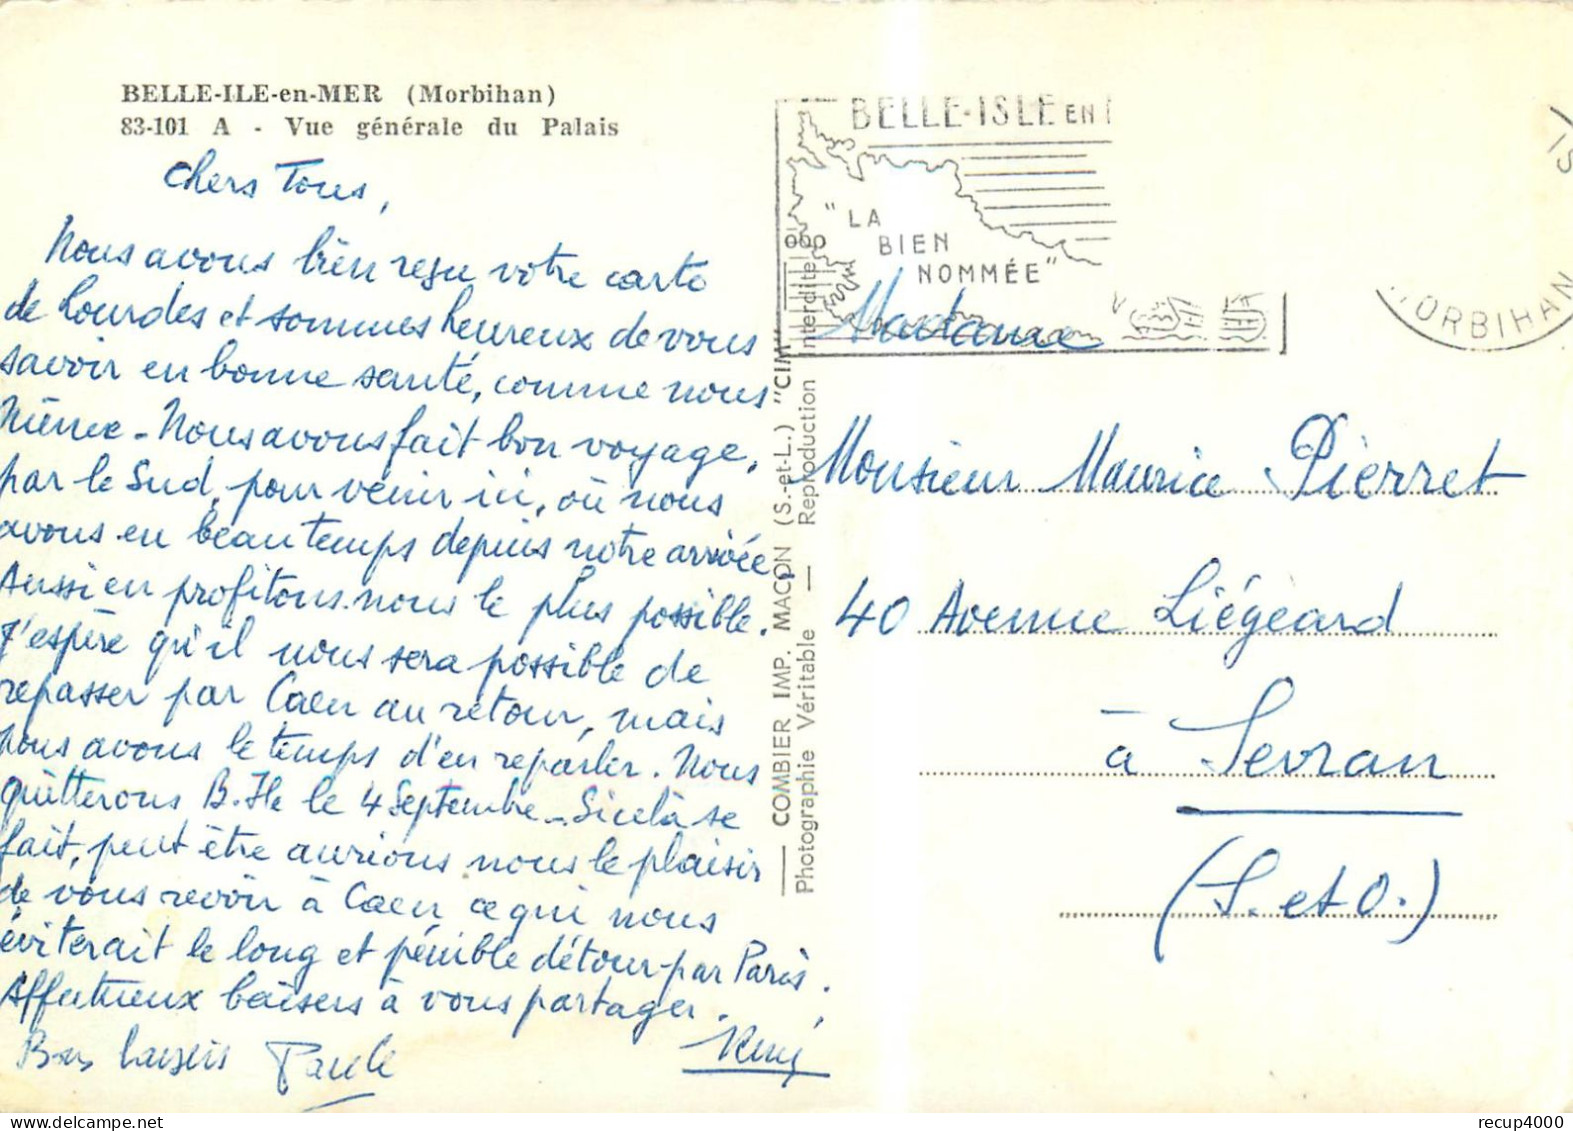 BELLE-ILE-en-MER (Morbihan)
83-101 A - Vue générale du Palais
Chers Tous,
Nous avons bien reçu votre carte
de Lourdes et sommes heureux de vous
savoir en bonne santé, comme nous
même - Nous avons fait bon voyage,
par le Sud, pour venir ici, où nous
avons eu beau temps depuis notre arrivée,
Aussi en profitons-nous le plus possible.
J'espère qu'il nous sera possible de
repasser par Caen au retour, mais
nous avons le temps d'en reparler. Nous
quitterons B. Ile le 4 Septembre - Si celà se
fait, peut être aurions nous le plaisir
de vous revoir à Caen, ce qui nous
éviterait le long et pénible détour par Paris.
Affectueux baisers à vous partager.
Rémy
Bons baisers Paule
COMBIER IMP. MACON (S.-et-L.) "CIM"
Photographie Véritable — Reproduction Interdite
BELLE-ISLE EN
"LA
BIEN
NOMMÉE"
MORBIHAN
15
Madame
Monsieur Maurice Pierret
40 Avenue Liégeard
à Sevran
(S. et O.)
recup4000